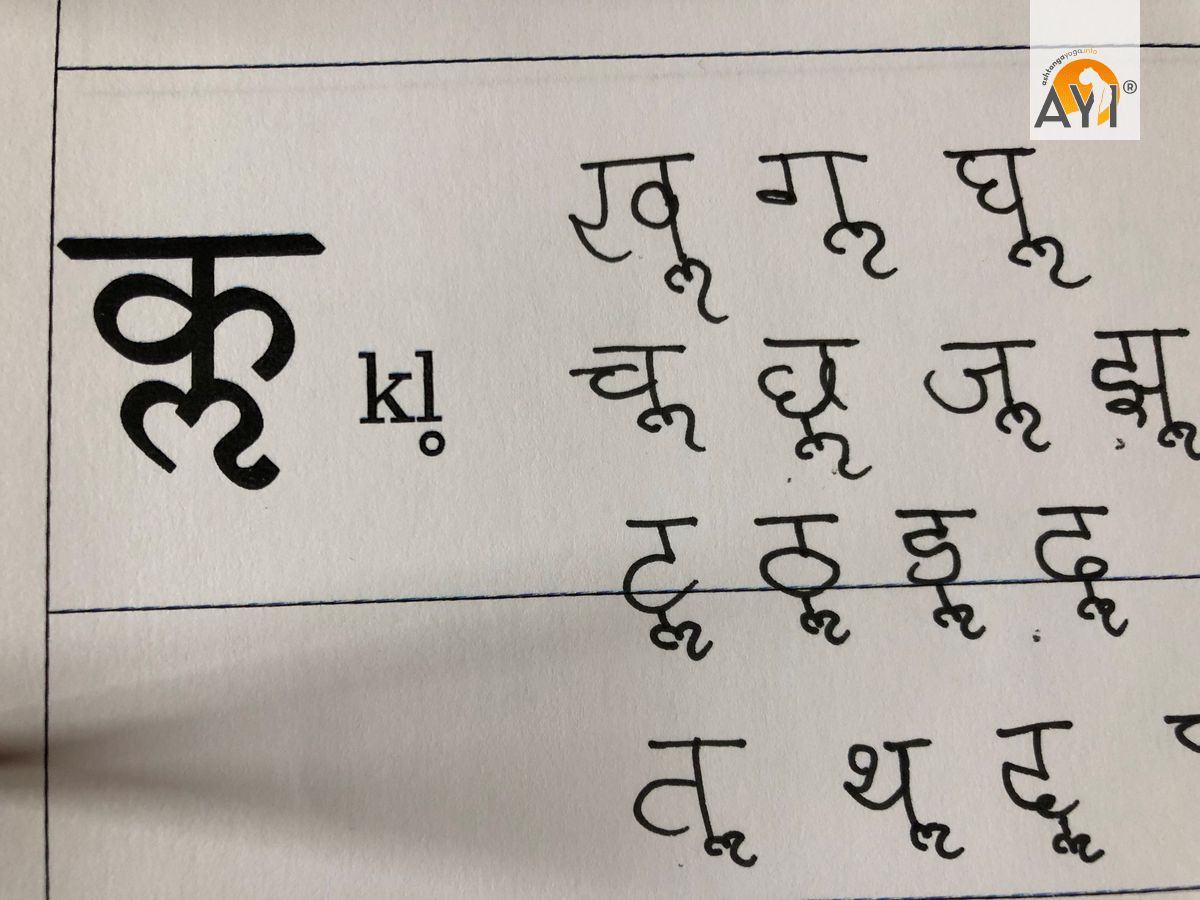 ashtangayoga.info
AYI®
खॢ गॢ घॢ
कॢ kl̥
चॢ छॢ जॢ झॢ
टॢ ठॢ डॢ ढॢ
तॢ थॢ दॢ